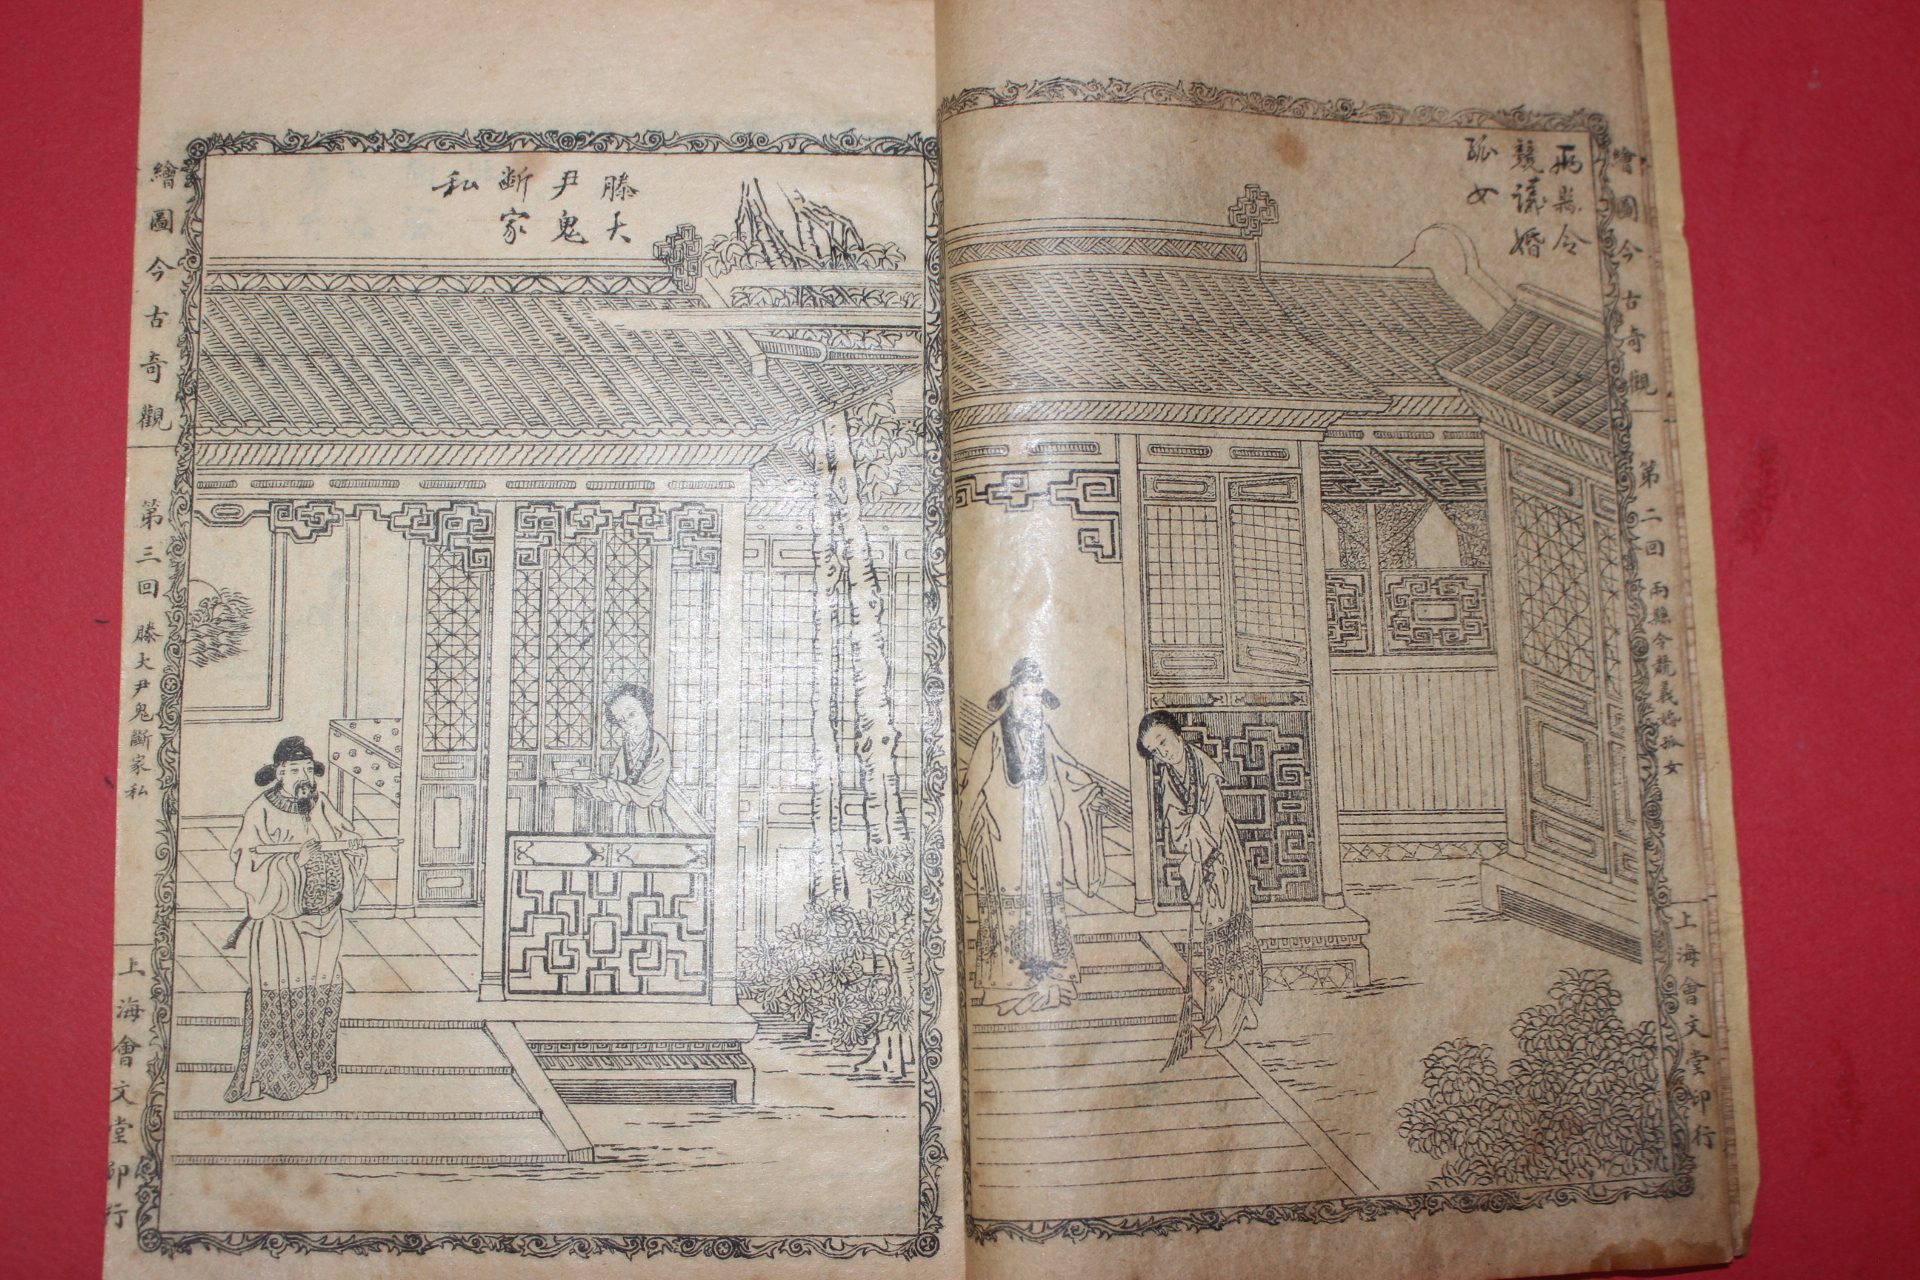 繪圖今古奇觀
第二回
兩縣令競義婚孤女
上海會文堂印行
兩縣令
競議婚
孤女
滕大
尹鬼
斷家
私
繪圖今古奇觀
第三回
滕大尹鬼斷家私
上海會文堂印行